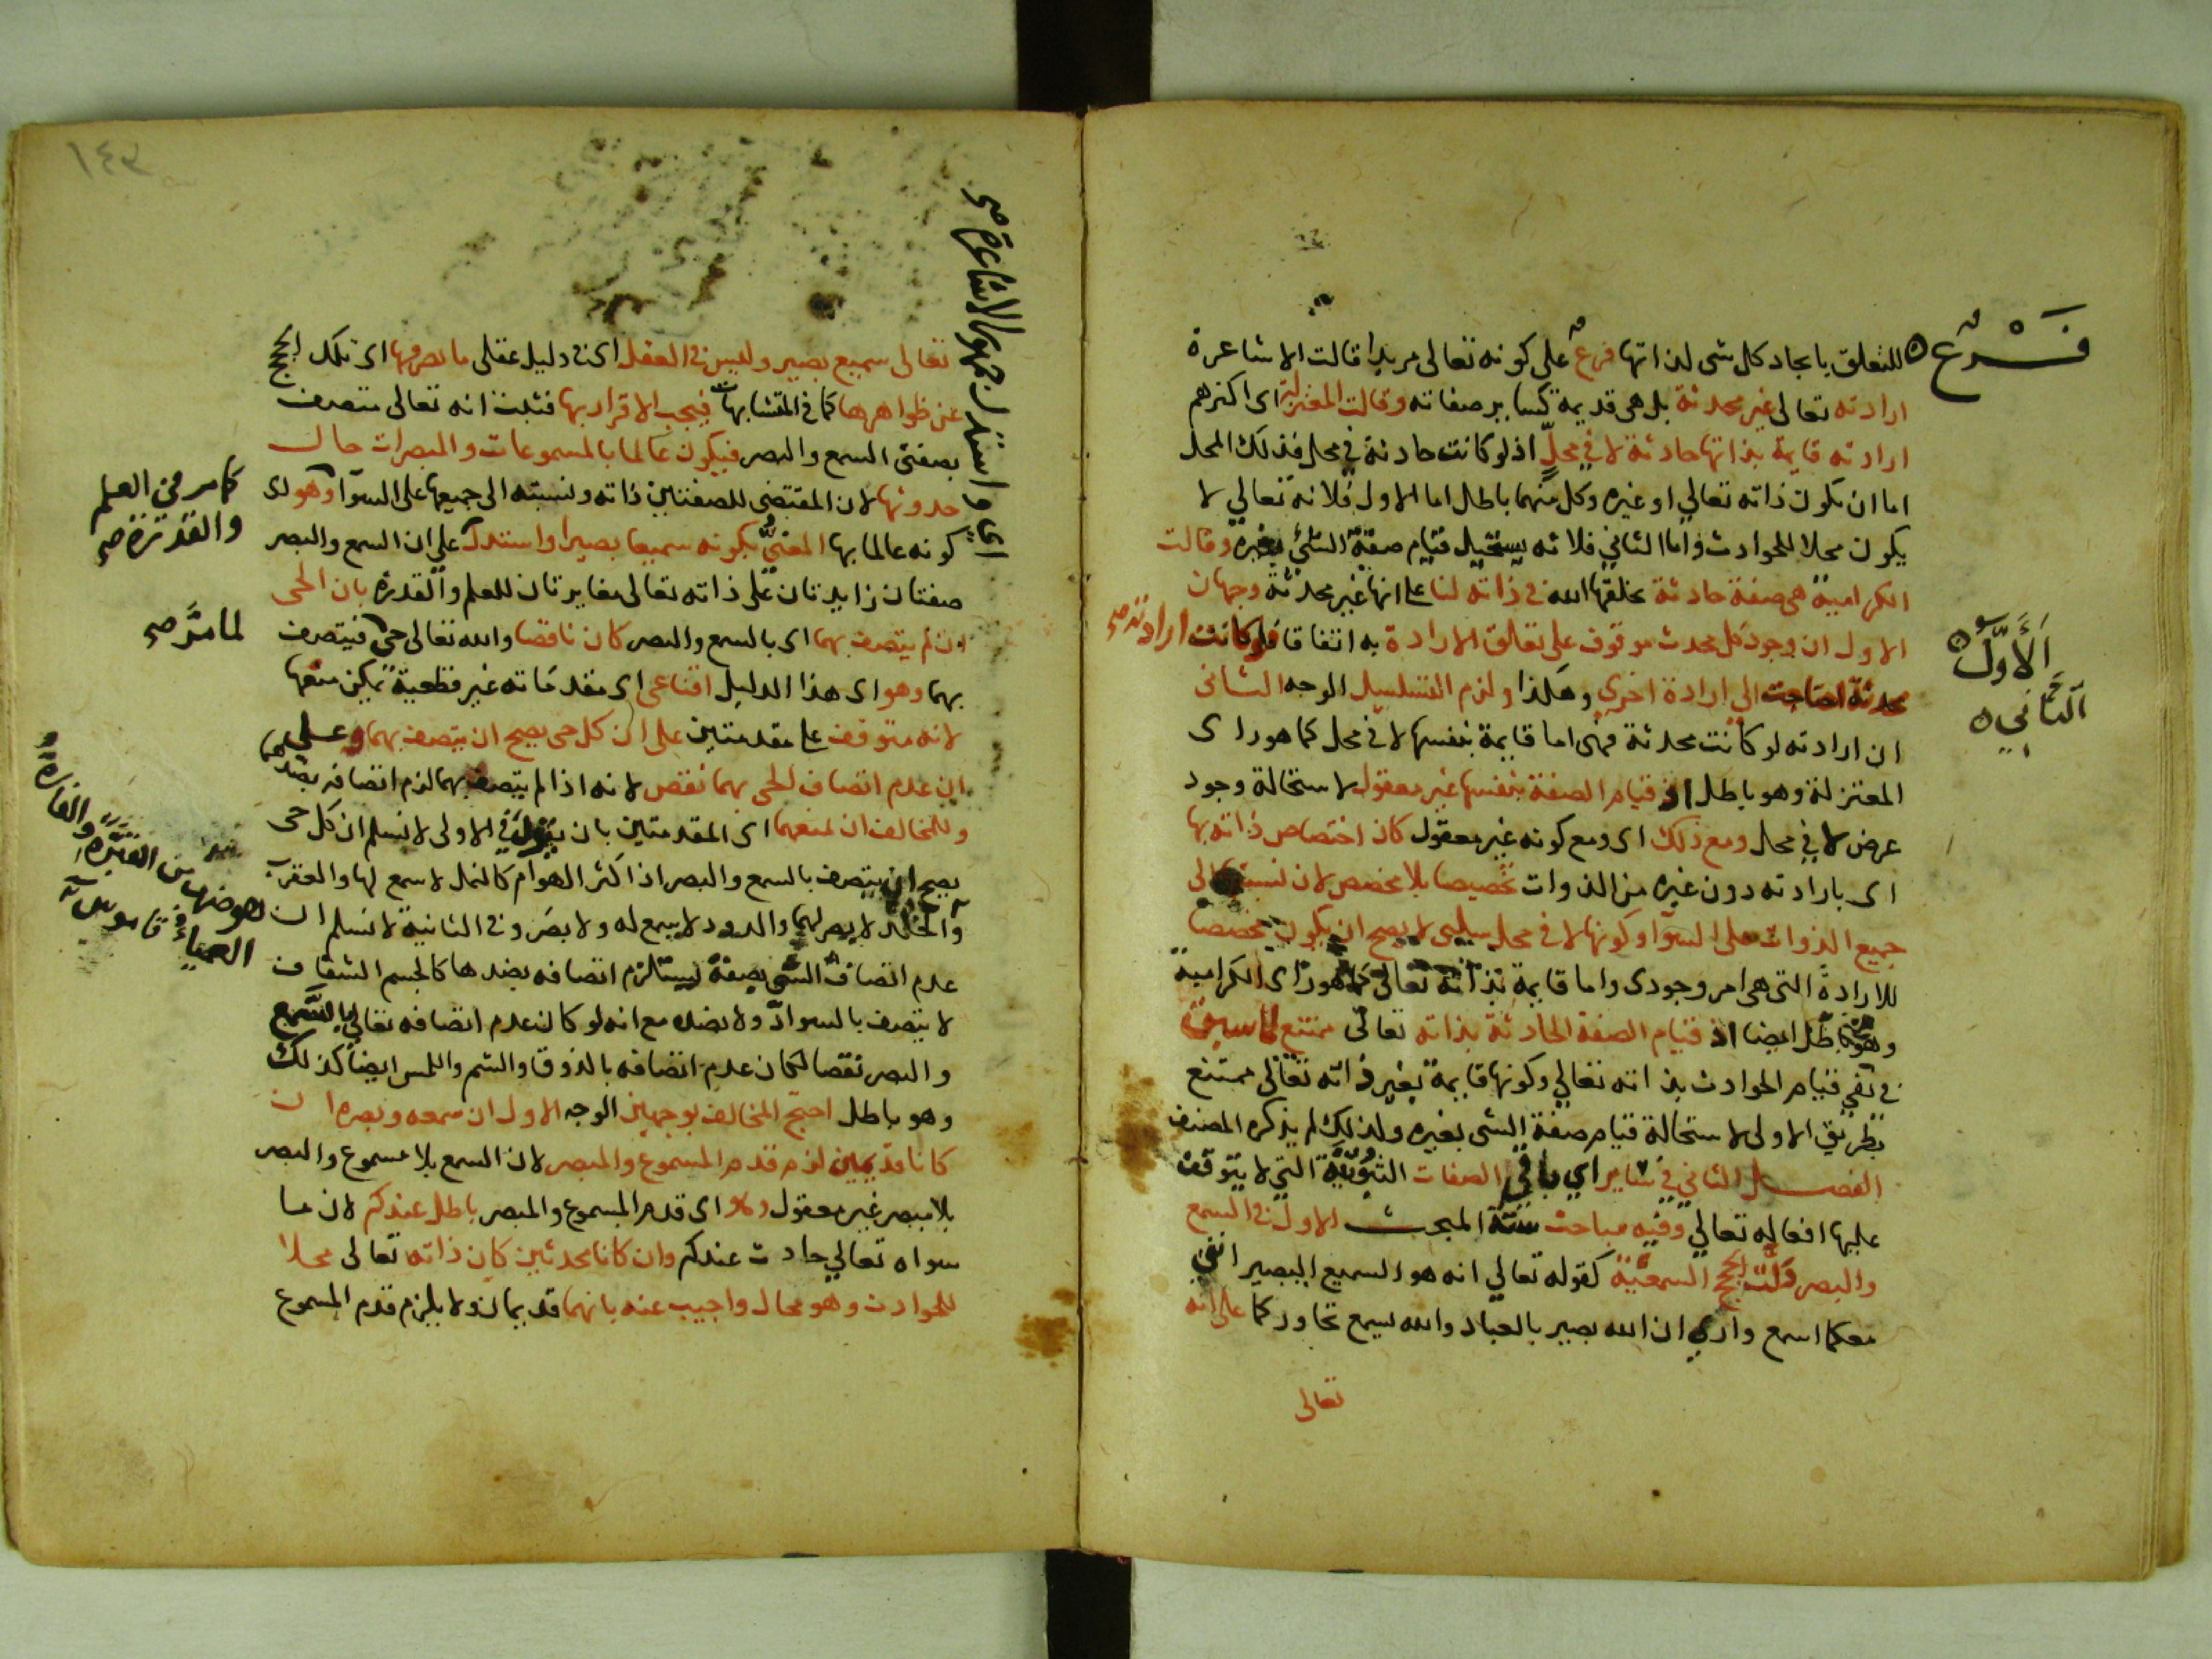 فرع
للتعلق بايجاد كل شى لذاتها فرع على كونه تعالى مريدا قالت الاشاعرة
ارادته تعالى غير محدثة بل هى قديمة كساير صفاته وقالت المعتزلة اى اكثرهم
ارادته قايمة بذاتها حادثة لا في محل اذ لو كانت حادثة في محل فذلك المحل
اما ان يكون ذاته تعالي او غيره وكل منهما باطل اما الاول فلانه تعالي لا
يكون محلا للحوادث واما الثاني فلانه يستحيل قيام صفة الشئ بغيره وقالت
الكرامية هى صفة حادثة يخلقها الله في ذاته لنا على انها غير محدثة وجهان
الاول
الاول ان وجود كل محدث موقوف على تعلق الارادة به اتفاقا فلو كانت ارادته صح
محدثة احتاجت الي ارادة اخري وهكذا ولزم التسلسل الوجه الثانى
الثاني
ان ارادته لو كانت محدثة فهى اما قايمة بنفسها لا في محل كما هو راى
المعتزلة وهو باطل اذ قيام الصفة بنفسها غير معقول لاستحالة وجود
عرض لا في محل ومع ذلك اى ومع كونه غير معقول كان اختصاص ذاته بها
اى بارادته دون غيره من الذوات تخصيصا بلا مخصص لان نسبتها الى
جميع الذوات على السوآ وكونها لا في محل سلبى لا يصح ان يكون مخصصا
للارادة التى هى امر وجودى واما قايمة بذاته تعالى كما هو راى الكرامية
وهو باطل ايضا اذ قيام الصفة الحادثة بذاته تعالى ممتنع لما سبق
في نفي قيام الحوادث بذاته تعالي وكونها قايمة بغير ذاته تعالى ممتنع
بطريق الاولى لاستحالة قيام صفة الشى بغيره ولذلك لم يذكره المصنف
الفصل الثاني في ساير اي باقي الصفات الثبوتية التي لا يتوقف
عليها افعاله تعالي وفيه مباحث ستة المبحث الاول في السمع
والبصر دلت الحجج السمعية كقوله تعالي انه هو السميع البصير انني
معكما اسمع واري ان الله بصير بالعباد والله يسمع تحاوركما على انه
تعالى
١٤٣
تعالى سميع بصير وليس في العقل اى في دليل عقلى ما يصرفها اى تلك الحجج
عن ظواهرها كما في المتشابهات فيجب الاقرار بها فثبت انه تعالى متصف
بصفتى السمع والبصر فيكون عالما بالمسموعات والمبصرات حال
حدوثها لان المقتضى للصفتين ذاته ونسبته الى جميعها على السوآ وهو اى
كما مر في العلم والقدرة صح
كونه عالما بها المعنى بكونه سميعا بصيرا واستدل على ان السمع والبصر
ايما واستدل جمهور الاشاعرة صح
صفتان زايدتان على ذاته تعالى مغايرتان للعلم والقدرة بان الحى
لما مر صح
ان لم يتصف بهما اى بالسمع والبصر كان ناقصا والله تعالى حى فيتصف
بهما وهو اى هذا الدليل اقناعى اى مقدماته غير قطعية يمكن منعها
لانه متوقف على مقدمتين على ان كل حى يصح ان يتصف بهما وعلى
ان عدم اتصاف الحى بهما نقص لانه اذا لم يتصف بهما لزم اتصافه بضدهما
وللمخالف ان يمنعهما اى المقدمتين بان يقول في الاولى لا نسلم ان كل حى
يصح ان يتصف بالسمع والبصر اذ اكثر الهوام كالنمل لا سمع لها والعقرب
والخلد لا بصر لهما والدود لا سمع له ولا بصر وفي الثانية لا نسلم ان
العمياء قاموس
عدم اتصاف الشى بصفة يستلزم اتصافه بضدها كالجسم الشفاف
لا يتصف بالسواد ولا بضده مع انه لو كان عدم اتصافه تعالي بالسمع
والبصر نقصا لكان عدم اتصافه بالذوق والشم واللمس ايضا كذلك
وهو باطل احتج المخالف بوجهين الوجه الاول ان سمعه وبصره ان
كانا قديمين لزم قدم المسموع والمبصر لان السمع بلا مسموع والبصر
بلا مبصر غير معقول وهو اى قدم المسموع والمبصر باطل عندكم لان ما
سواه تعالي حادث عندكم وان كانا محدثين كان ذاته تعالى محلا
للحوادث وهو محال واجيب عنه بانهما قديمان ولا يلزم قدم المسموع